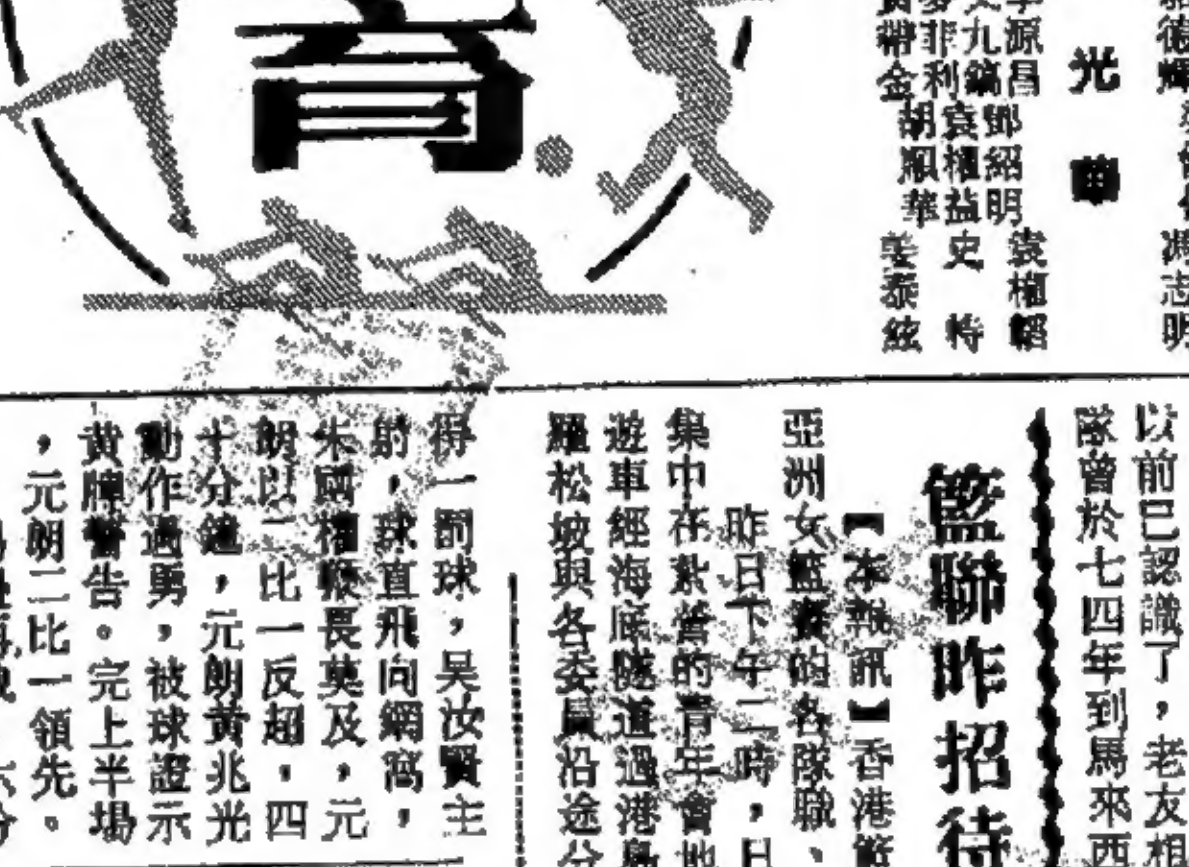 育
光華
源昌 鄧紹明 袁權韜
九鏑 袁權益 史特
非利 胡順華 姜泰絃
帶金
馮志明
以前已認識了，老友相
隊曾於七四年到馬來西
籃聯昨招待
【本報訊】香港籃
亞洲女籃賽的各隊職、
昨日下午二時，
集中在紮營的青年會地
遊車經海底隧道過港島
羅松坡與各委員沿途分
得一罰球，吳汝賢主
射，球直飛向網窩，
朱國權猴長莫及，元
朗以二比一反超，四
十分鐘，元朗黃兆光
動作過勇，被球證示
黃牌警告。完上半場
，元朗二比一領先。